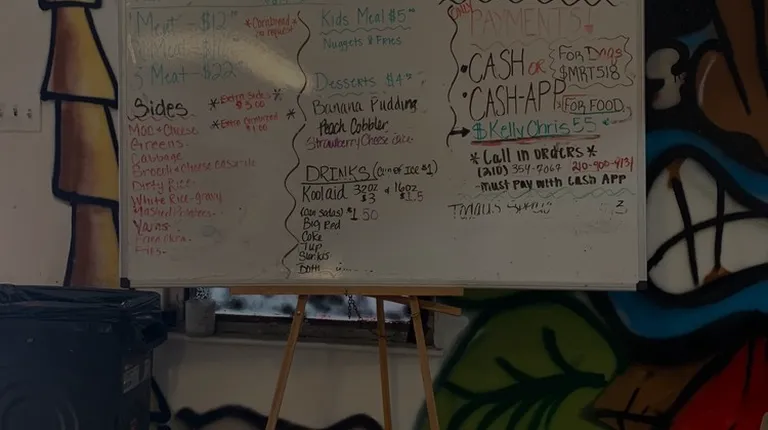 1 Meat - $12
Meat
3 Meat - $22
*Combined
on request
Sides
*Extra Sides *
$3.00
*Extra Combined *
$1.00
Mac & Cheese
Greens
Cabbage
Broccoli & Cheese Casserole
Dirty Rice
White Rice-gravy
Mashed Potatoes
Yams
Fries
Kids Meal $5
Nuggets & Fries
Desserts $4
Banana Pudding
Peach Cobbler
Strawberry Cheese Cake
DRINKS (Cup of Ice $1)
Koolaid 32oz & 16oz
$3 $1.5
(can sodas) $1.50
Big Red
Coke
7up
Sunkist
ONLY
PAYMENTS!
•CASH OR
•CASH-APP
For Dngs
$MRT518
FOR FOOD
→ $KellyChris55
* Call in orders *
(210) 354-7067 210-900-9131
-must Pay with Cash APP